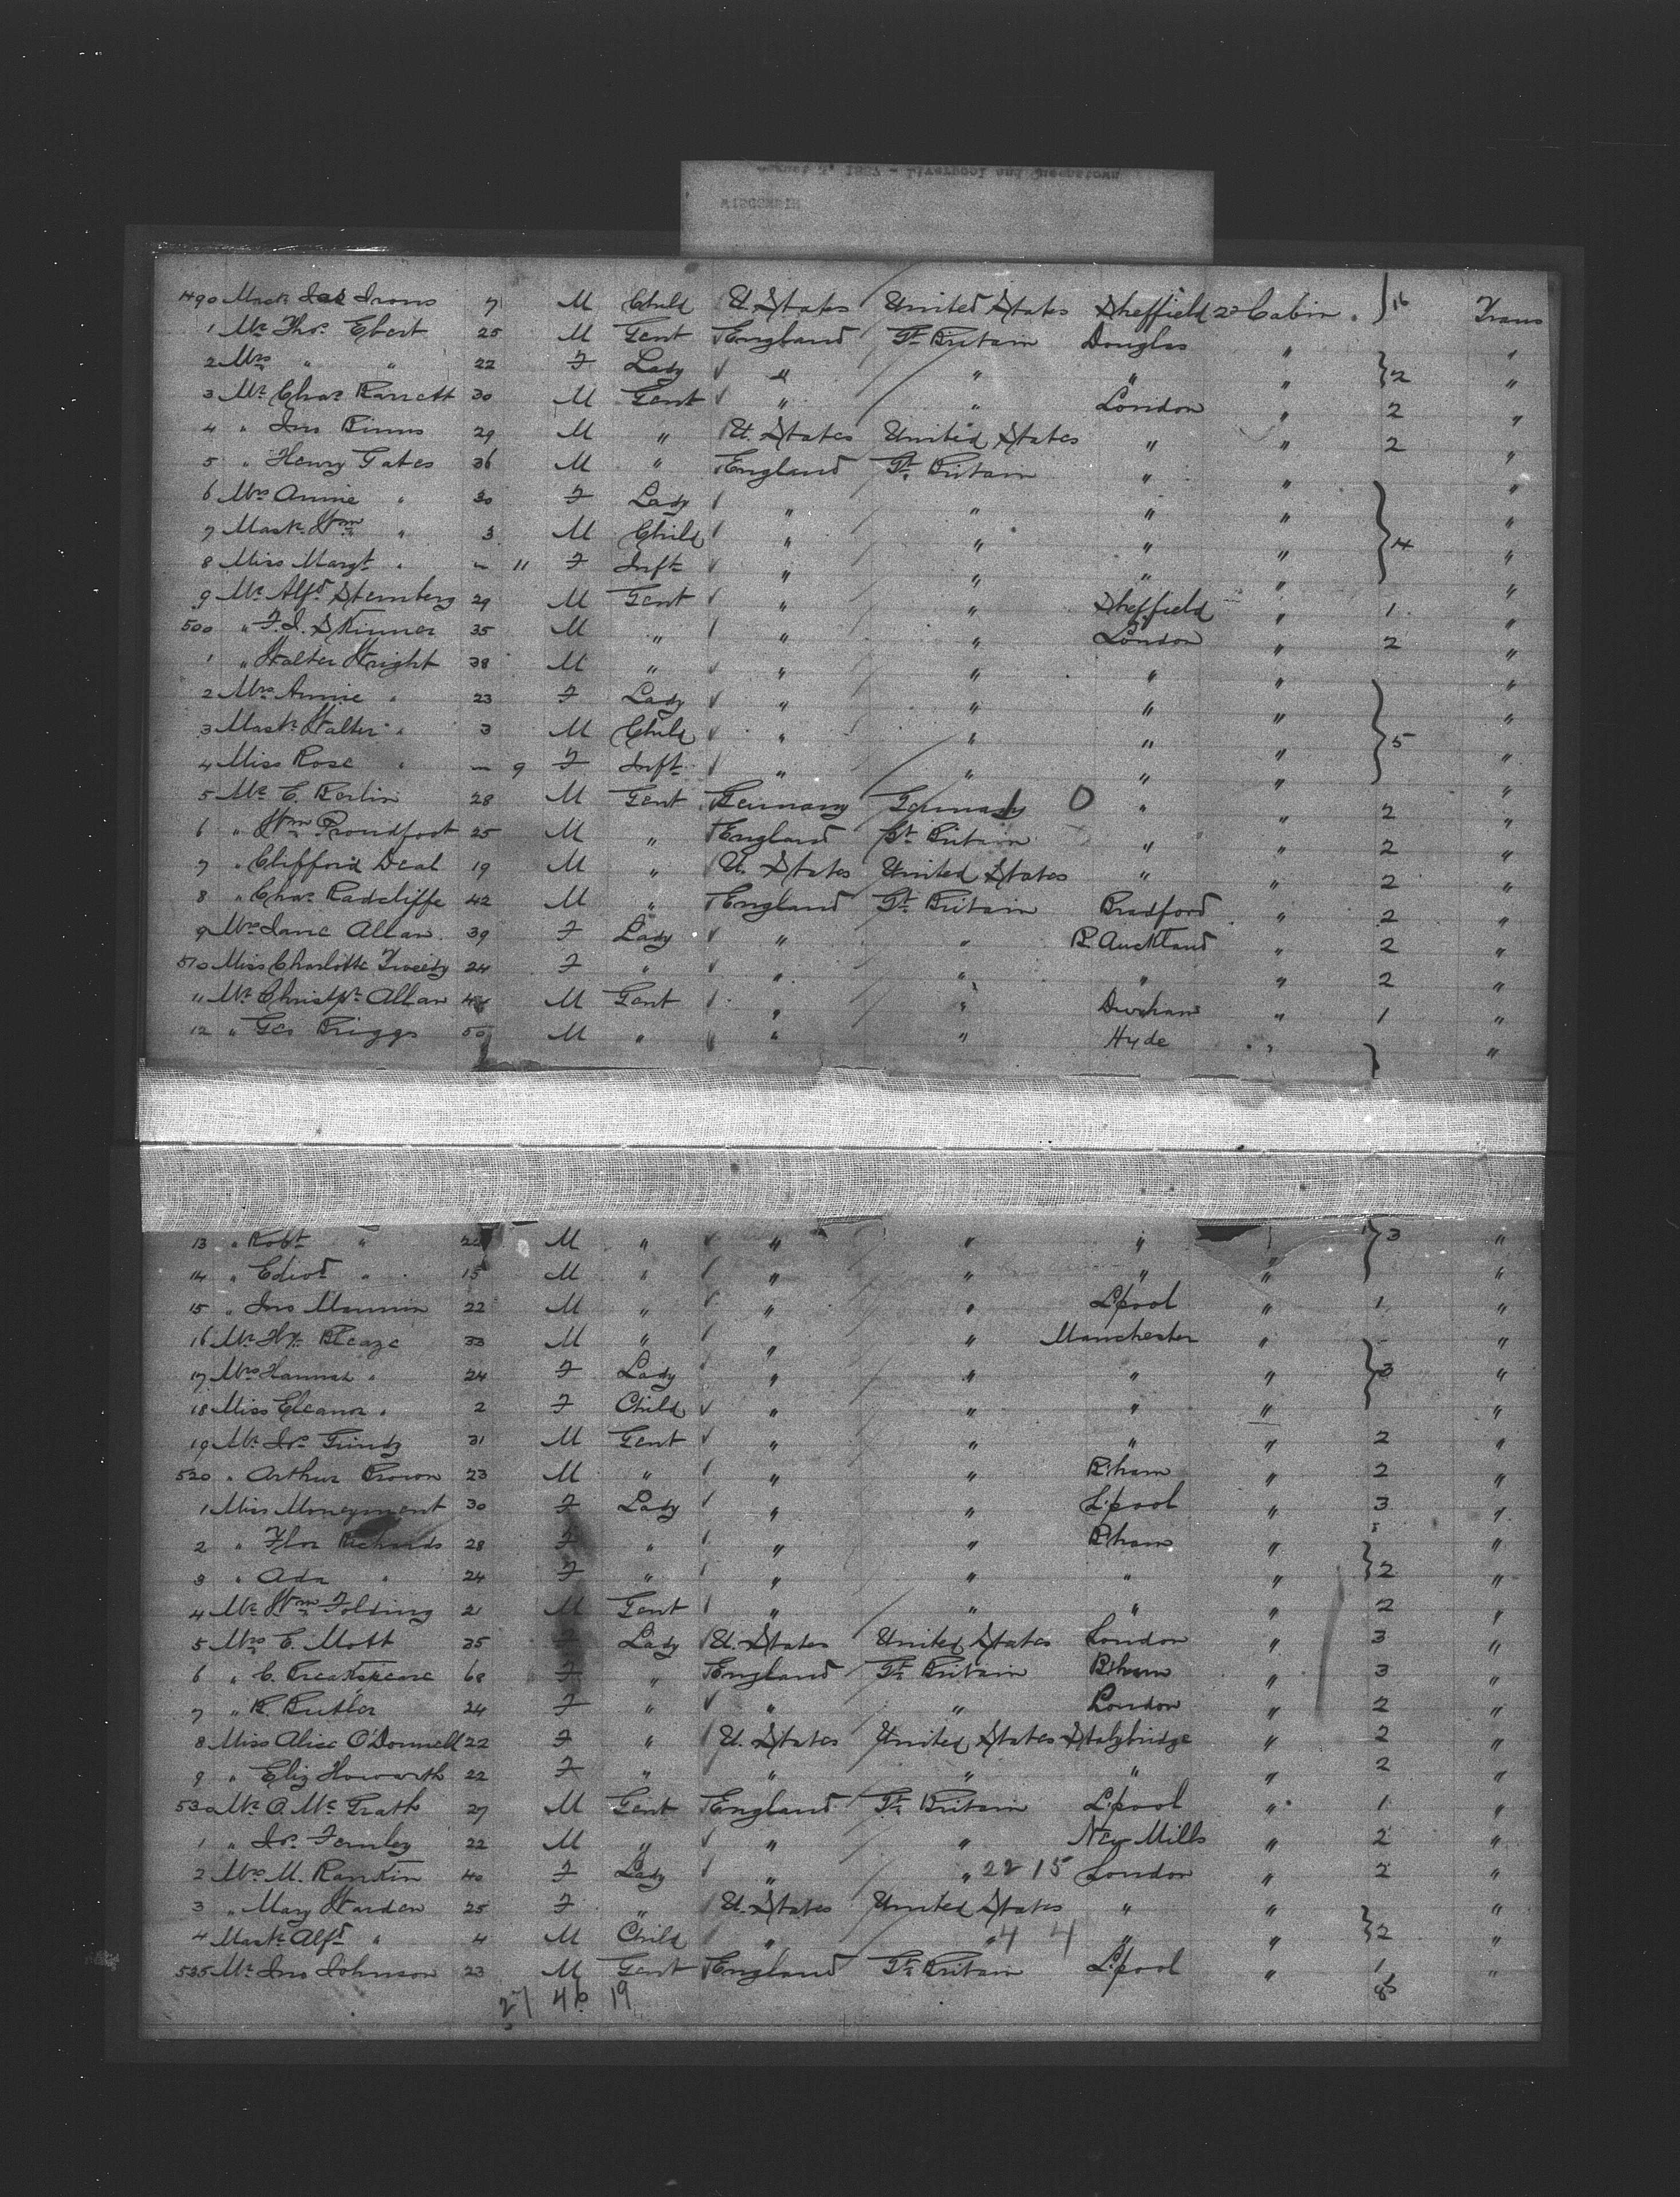 August 5, 1887 - Liverpool and Queenstown
WISCONSIN
490 Mastr Jas Irons 7 M Child U. States United States Sheffield 2d Cabin " } 16 Trans
1 Mr Thos. Ebert 25 M Gent England Gt Britain Douglas " "
2 Mrs " " 22 F Lady " " " " } 2 "
3 Mr Chas Barrett 30 M Gent " " London " 2 "
4 " Jno Binns 29 M " U. States United States " " 2 "
5 " Henry Gates 36 M " England Gt Britain " " "
6 Mrs Annie " 30 F Lady " " " " "
7 Mastr Wm " 3 M Child " " " " } 4 "
8 Miss Margt " - 11 F Inft " " " " "
9 Mr Alfd Sternberg 29 M Gent " " Sheffield " 1 "
500 " F. J. Skinner 35 M " " " London " 2 "
1 " Walter Wright 38 M " " " " " "
2 Mrs Annie " 23 F Lady " " " " "
3 Mastr Walter " 3 M Child " " " " } 5 "
4 Miss Rose " - 9 F Inft " " " " "
5 Mr C. Berlin 28 M Gent Germany Germany O " " 2 "
6 " Wm Proudfoot 25 M " England Gt Britain " " 2 "
7 " Clifford Deal 19 M " U. States United States " " 2 "
8 " Chas Radcliffe 42 M " England Gt Britain Bradford " 2 "
9 Mrs Jane Allan 39 F Lady " " B. Auckland " 2 "
510 Miss Charlotte Tweedy 24 F " " " " " 2 "
11 Mr Christpr Allan M Gent " " Durham " 1 "
12 " Geo Briggs 50 M " " " Hyde " } "
13 " Robt " M " " " " " } 3 "
14 " Edwd " 15 M " " " " " "
15 " Jno Mannin 22 M " " " L'pool " 1 "
16 Mr Hy. Bleaze 33 M " " " Manchester " "
17 Mrs Hannah " 24 F Lady " " " " } 3 "
18 Miss Eleanor " 2 F Child " " " " "
19 Mr Js. Grindy 31 M Gent " " " " 2 "
520 " Arthur Brown 23 M " " " B'ham " 2 "
1 Miss Moneyment 30 F Lady " " L'pool " 3 "
2 " Flor Richards 28 F " " " B'ham " "
3 " Ada " 24 F " " " " " } 2 "
4 Mr Wm Folding 21 M Gent " " " " 2 "
5 Mrs E. Mott 35 F Lady U. States United States London " 3 "
6 " C. 68 F " England Gt Britain B'ham " 3 "
7 " B. Butler 24 F " " " London " 2 "
8 Miss Alice O'Donnell 22 F " U. States United States Stalybridge " 2 "
9 " Eliz Howarth 22 F " " " " " 2 "
530 Mr O. Mc Grath 27 M Gent England Gt Britain L'pool " 1 "
1 " Js. Fernley 22 M " " " New Mills " 2 "
2 Mrs M. Rankin 40 F Lady " " 22 15 London " 2 "
3 " Mary Warden 25 F " U. States United States " " "
4 Mastr Alfd " 4 M Child " " 4 4 " " } 2 "
535 Mr Jno Johnson 23 M Gent England Gt Britain L'pool " 1 "
27 46 19